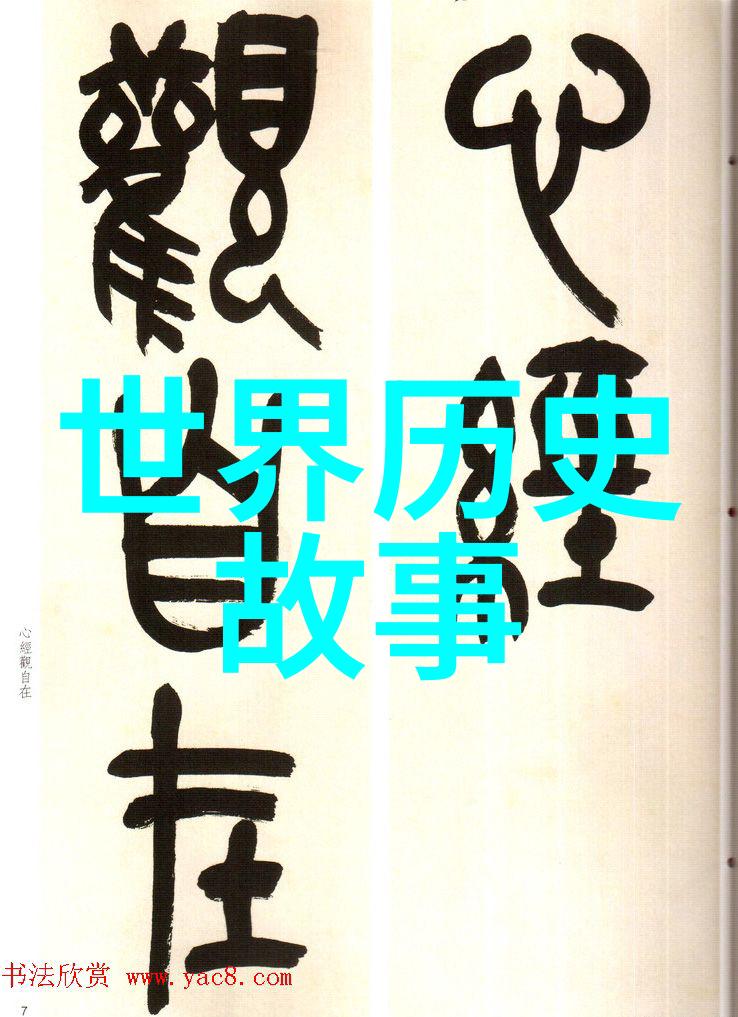 心經
觀自在
世界历史
故事
心經觀自在
书法欣赏 www.yac8.com
7